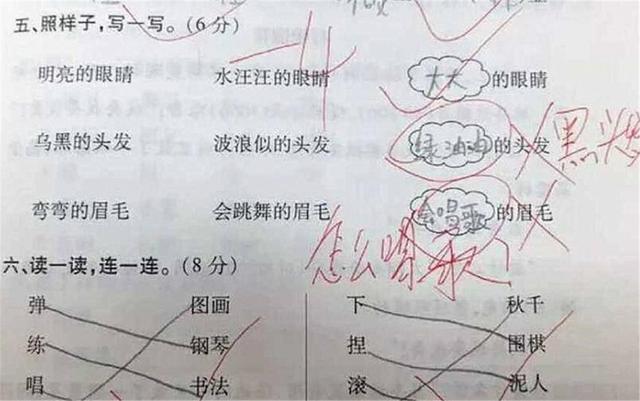 五、照样子,写一写。(6分)
明亮的眼睛 水汪汪的眼睛 大大的眼睛
乌黑的头发 波浪似的头发 绿油油的头发
黑
弯弯的眉毛 会跳舞的眉毛 会唱歌的眉毛
怎么唱歌
六、读一读,连一连。(8分)
弹 图画 下 秋千
练 钢琴 捏 围棋
唱 书法 滚 泥人